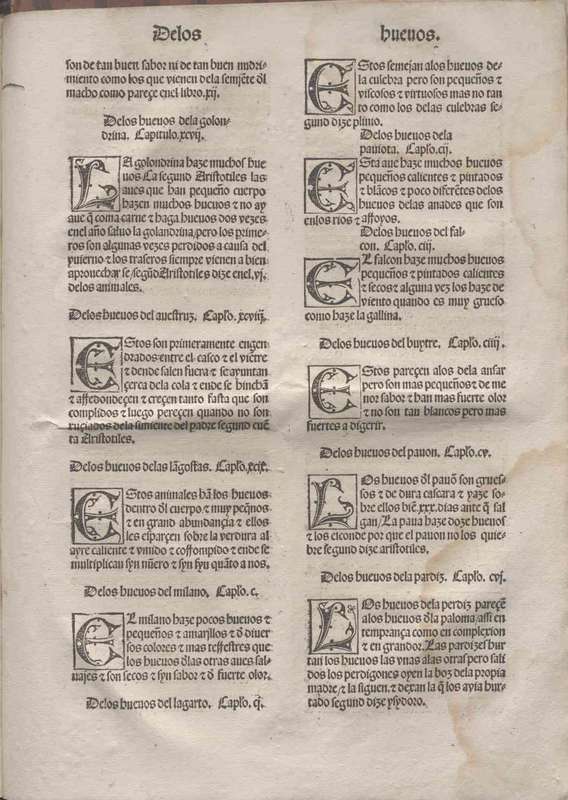 Delos hueuos.
son de tan buen sabor ni de tan buen nudri-
miento como los que vienen dela semẽte ðl
macho como pareçe enel libro.xij.
Delos hueuos dela golon-
drina. Capitulo.xcvij.
LA golondrina haze muchos hue
uos Ca segund Aristotiles las
aues que han pequeño cuerpo
hazen muchos hueuos ⁊ no ay
aue q̃ coma carne ⁊ haga hueuos dos vezes
enel año saluo la golandrina, pero los prime-
ros son algunas vezes perdidos a causa del
yuierno ⁊ los traseros siempre vienen a bien
aprouechar se segũd Aristotiles dize enel.vj.
delos animales.
Delos hueuos del auestruz. Capl̃o.xcviij.
EStos son primeramente engen
drados entre el casco ⁊ el viẽtre
⁊ dende salen fuera ⁊ se ayuntan
çerca dela cola ⁊ ende se hinchã
⁊ assedondeçen ⁊ creçen tanto fasta que son
complidos ⁊ luego pereçen quando no son
ruçiados dela simiente del padre segund cuẽ
ta Aristotiles.
Delos hueuos delas lãgostas. Capl̃o.xcix.
EStos animales hã los hueuos
dentro ðl cuerpo ⁊ muy peq̃nos
⁊ en grand abundançia ⁊ ellos
les esparçen sobre la verdura al
ayre caliente ⁊ vmido ⁊ coffompido ⁊ ende se
multiplicau syn nũero ⁊ syn fyu quãto a nos.
Delos hueuos del milano. Capl̃o. c.
EL milano haze pocos hueuos ⁊
pequeños ⁊ amaryllos ⁊ ð diuer
sos colores ⁊ mas teffestres que
los hueuos ðlas otras aues sal-
uajes ⁊ son secos ⁊ syn sabor ⁊ ð fuerte olor.
Delos hueuos del lagarto. Capl̃o. cj.
EStos semejan alos hueuos de-
la culebra pero son pequeños ⁊
viscosos ⁊ virtuosos mas no tan
to como los delas culebras se-
gund dize plinio.
Delos hueuos dela
pauiota. Capl̃o.cij.
ESta aue haze muchos hueuos
pequeños calientes ⁊ pintados
⁊ blãcos ⁊ poco diferẽtes delos
hueuos delas anades que son
enlos rios ⁊ affoyos.
Delos hueuos del fal-
con. Capl̃o. ciij.
EL falcon haze muchos hueuos
pequeños ⁊ pintados calientes
⁊ secos ⁊ alguna vez los haze de
viento quando es muy grueso
como haze la gallina.
Delos hueuos del buytre. Capl̃o. ciiij.
EStos pareçen alos dela ansar
pero son mas pequeños ⁊ de me
nor sabor ⁊ han mas fuerte olor
⁊ no son tan blancos pero mas
fuertes a digerir.
Delos hueuos del pauon. Capl̃o. cv.
LOs hueuos ðl pauõ son grues-
sos ⁊ de dura cascara ⁊ yaze so-
bre ellos biẽ.xxx.dias ante q̃ sal
gan/La paua haze doze hueuos
⁊ los esconde por que el pauon no los quie-
bre segund dize aristotiles.
Delos hueuos dela pardiz. Capl̃o. cvj.
LOs hueuos dela perdiz pareçẽ
alos hueuos ðla paloma assi en
temprança como en complexion
⁊ en grandor. Las pardizes hur
tan los hueuos las vnas alas otras pero sali
dos los perdigones oyen la boz dela propia
madre/⁊ la siguen. ⁊ dexan la q̃ los ayia hur-
tado segund dize ysydoro.